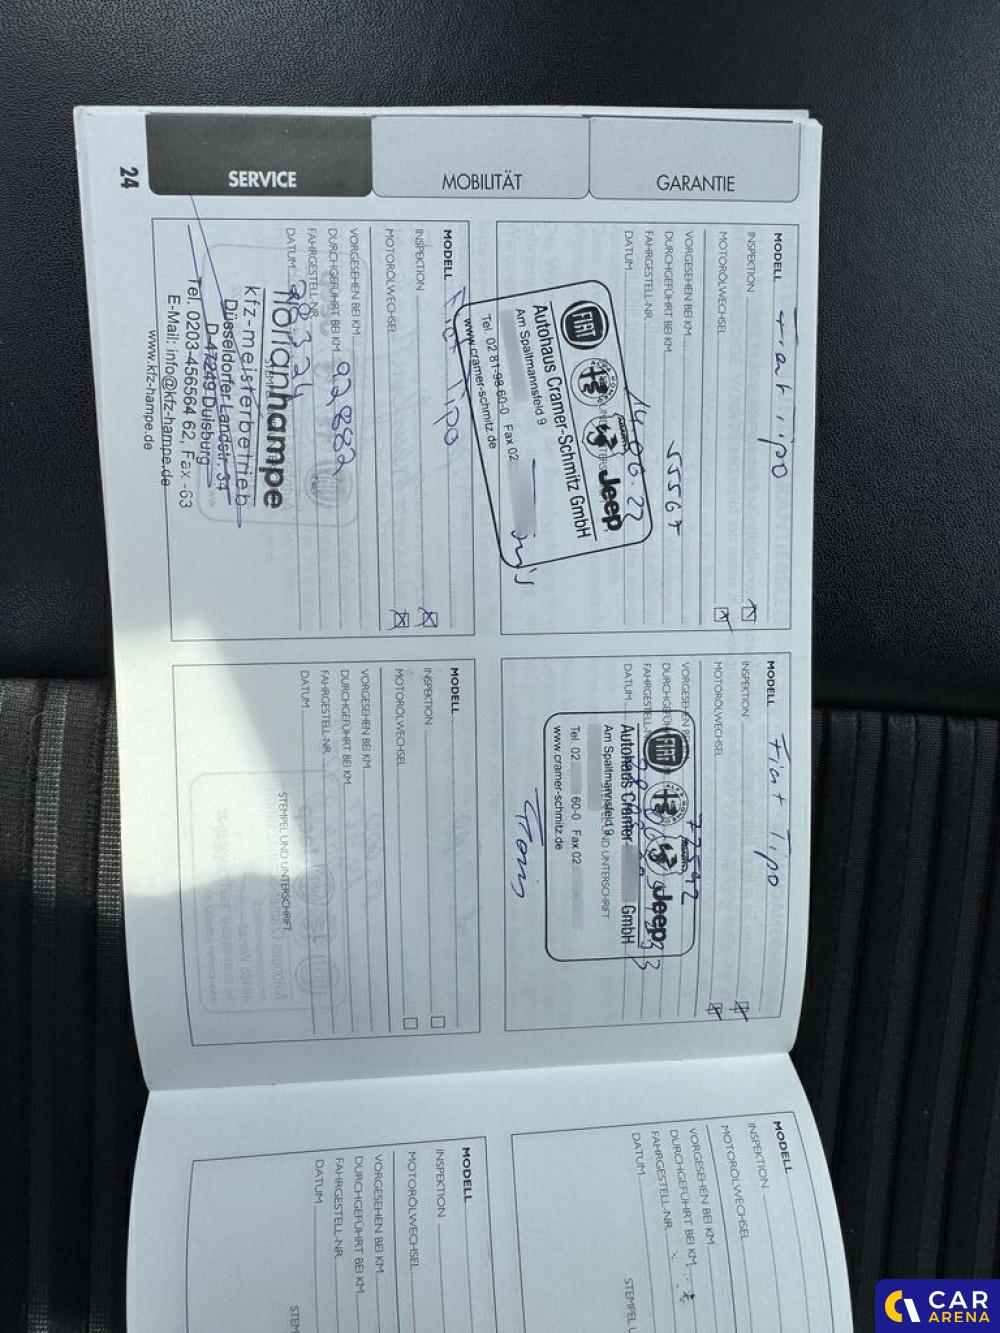 24
SERVICE
MOBILITÄT
GARANTIE
MODELL Fiat Tipo
INSPEKTION
MOTORÖLWECHSEL
VORGESEHEN BEI KM
DURCHGEFÜHRT BEI KM 55567
FAHRGESTELL-NR.
DATUM 14.06.22
FIAT
Jeep
Autohaus Cramer-Schmitz GmbH
Am Spaltmannsfeld 9
Tel. 02 81-98 60-0 Fax 02
www.cramer-schmitz.de
MODELL Fiat Tipo
INSPEKTION
MOTORÖLWECHSEL
VORGESEHEN BEI KM
DURCHGEFÜHRT BEI KM 77592
FAHRGESTELL-NR.
DATUM
FIAT
Jeep
Autohaus Cramer GmbH
STEMPEL UND UNTERSCHRIFT
Am Spaltmannsfeld 9
Tel. 02 60-0 Fax 02
www.cramer-schmitz.de
MODELL Fiat Tipo
INSPEKTION
MOTORÖLWECHSEL
VORGESEHEN BEI KM
DURCHGEFÜHRT BEI KM 92882
FAHRGESTELL-NR.
DATUM 28.3.24
florianhampe
kfz-meisterbetrieb
Düsseldorfer Landstr. 34
D-47249 Duisburg
Tel. 0203-456564 62, Fax -63
E-Mail: info@kfz-hampe.de
www.kfz-hampe.de
MODELL
INSPEKTION
MOTORÖLWECHSEL
VORGESEHEN BEI KM
DURCHGEFÜHRT BEI KM
FAHRGESTELL-NR.
DATUM
STEMPEL UND UNTERSCHRIFT
MODELL
INSPEKTION
MOTORÖLWECHSEL
VORGESEHEN BEI KM
DURCHGEFÜHRT BEI KM
FAHRGESTELL-NR.
DATUM
STEMPEL U
MODELL
INSPEKTION
MOTORÖLWECHSEL
VORGESEHEN BEI KM
DURCHGEFÜHRT BEI KM
FAHRGESTELL-NR.
DATUM
STEM
CAR
ARENA